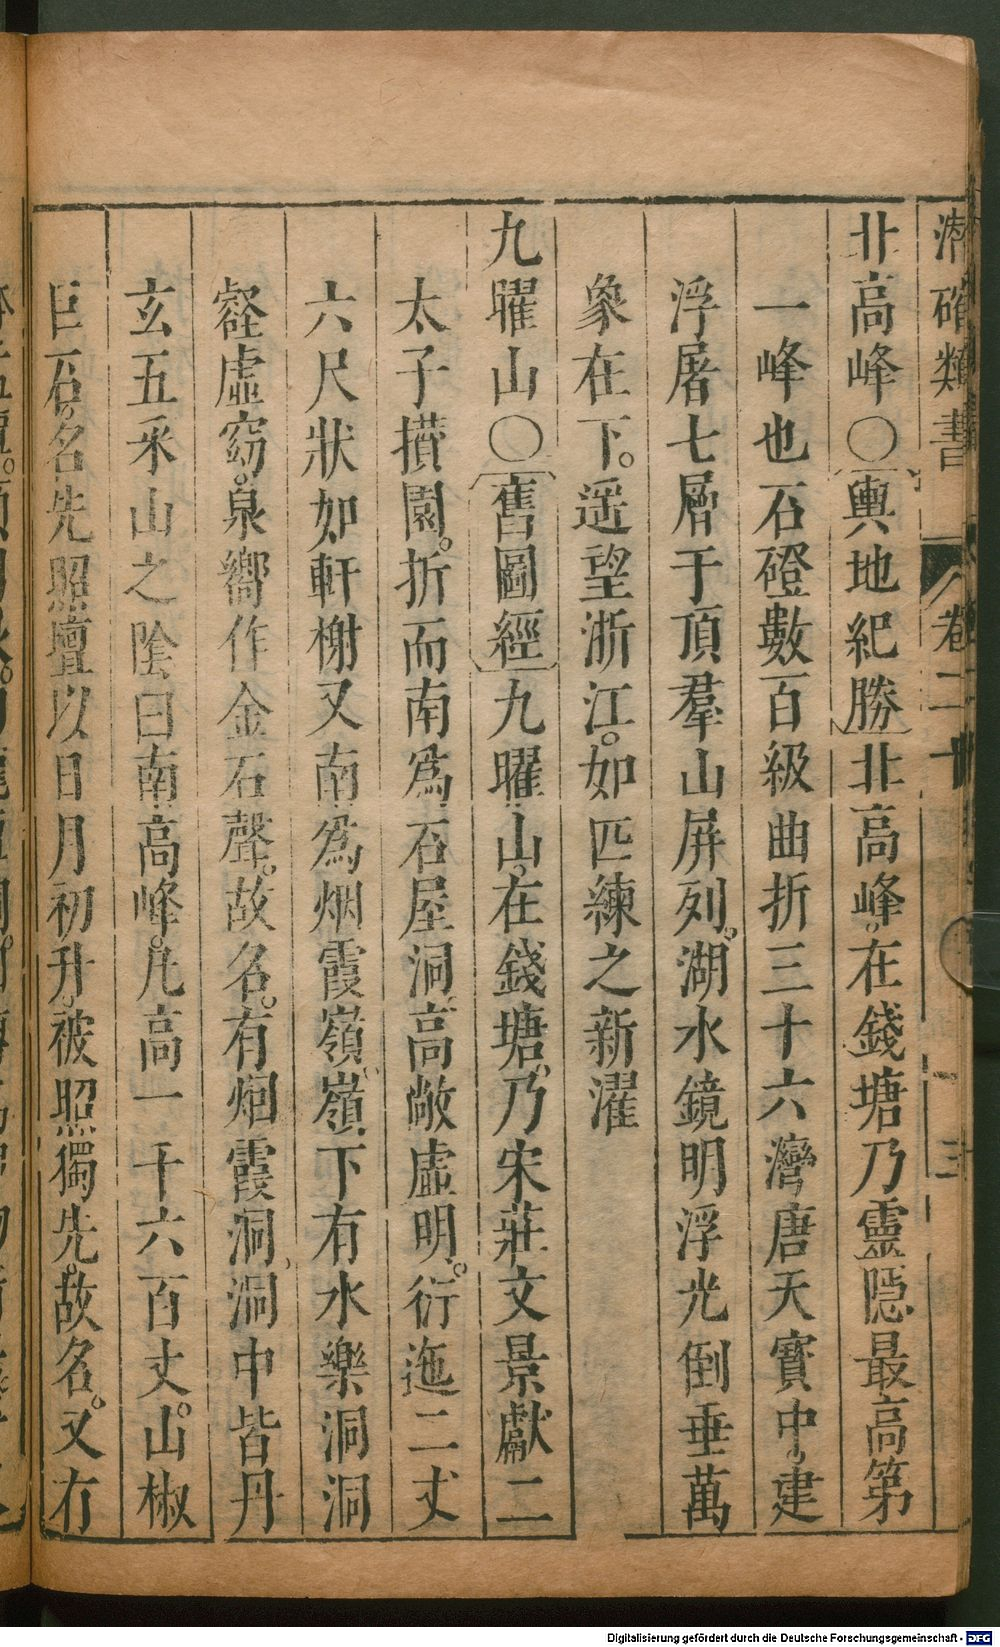 潜確類書 卷二十 三
北高峰〇輿地紀勝北高峰。在錢塘乃靈隱最高第
一峰也石磴數百級曲折三十六灣唐天寶中建
浮屠七層于頂羣山屏列。湖水鏡明浮光倒垂萬
象在下。遥望浙江。如匹練之新濯
九曜山〇舊圖經九曜山。在錢塘。乃宋莊文景獻二
太子攅園。折而南爲石屋洞。高敞虛明。衍迤二丈
六尺狀如軒榭又南爲烟霞嶺。嶺下有水樂洞洞
谾虛窈。泉嚮作金石聲。故名。有烟霞洞。洞中皆丹
玄五采山之陰曰南高峰。凡高一千六百丈。山椒
巨石。名先照壇以日月初升。被照獨先。故名。又有
Digitalisierung gefördert durch die Deutsche Forschungsgemeinschaft - DFG